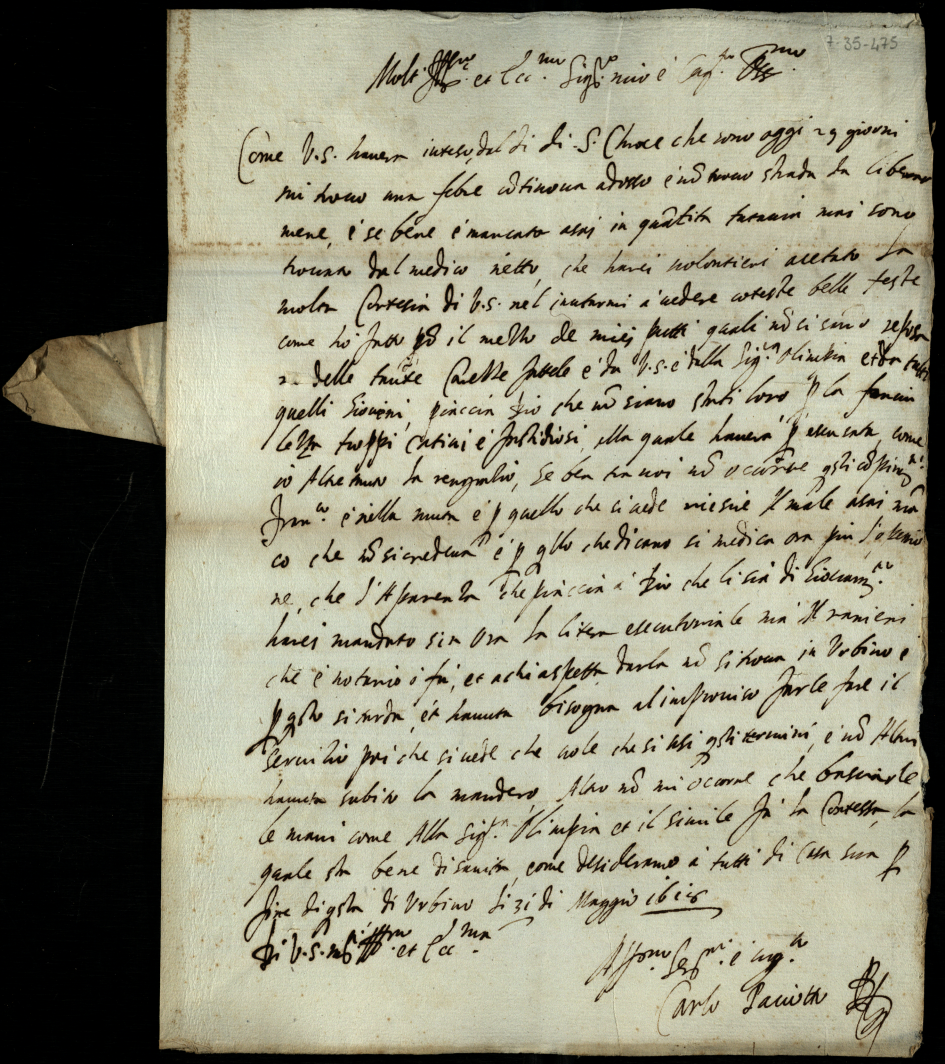 7-35-475
Molt' Ill.re et Ecc.mo Sig.r mio e Cog.to Oss.mo
Come V.S. havera inteso, dal dì di S. Croce che sono oggi 29 giorni
mi trovo una febre cõtinova adosso e nõ trovo strada da liberar
mene, e se bene è mancata asai in quãtità tutavia mai sono
trovato dal medico netto, che harei volontieri acetato la
molta Cortesia di V.S. nel invitarmi a vedere coteste belle feste
come hò fatto il mezzo de miei putti quali nõ si sono
delle tante Carezze fattele e da V.S. e dalla Sig.ra Olimpia et da tutti
quelli Giovini, piaccia Dio che nõ siano stati loro p la fanciu
lezza troppi cativi e fastidiosi, alla quale havera p escusata, come
io la, se ben tra noi nõ occorrone
è nella muta e p quello che si vede il male asai man
co che nõ si credeva e p qllo che dicano si medica ora più
ne, che d'Aparenza che piaccia a Dio che li sia di
harei mandato sin ora la litera esecutoriale ma il ranieri
che è notario, et a chi aspetta darla nõ si trova in Urbino e
p qsto si tarda, et havuta bisogna al improviso farle fare il
servitio poi che si vede che vole che si usi qsti termini, e nõ
havuta subito la manderò Altro nõ mi occorre che basciarle
le mani come Alla Sig.ra Olimpia et il simile fà la Contessa, la
quale sta bene di sanità, come desideramo a tutti di Casa sua p
fine di qsta di Urbino li 31 di Maggio
Di V.S. m.to Ill.re et Ecc.ma
Aff.mo Ser.re e cog.to
Carlo Paciotto